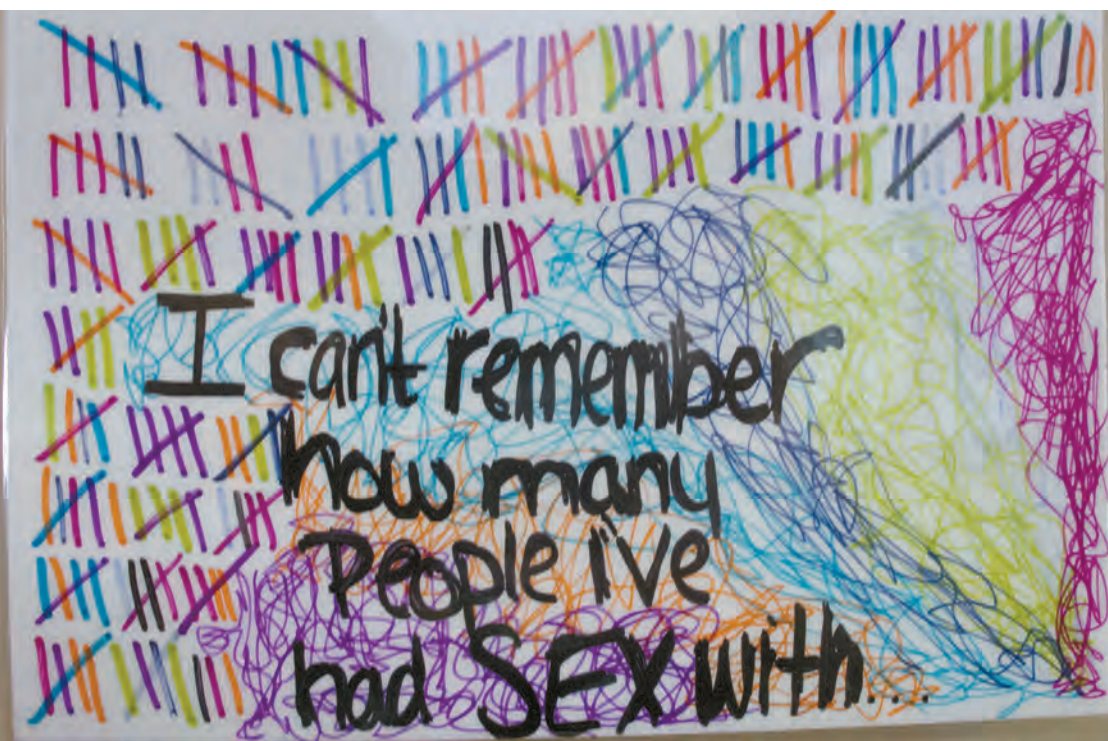 I can't remember
how many
People i've
had SEX with....